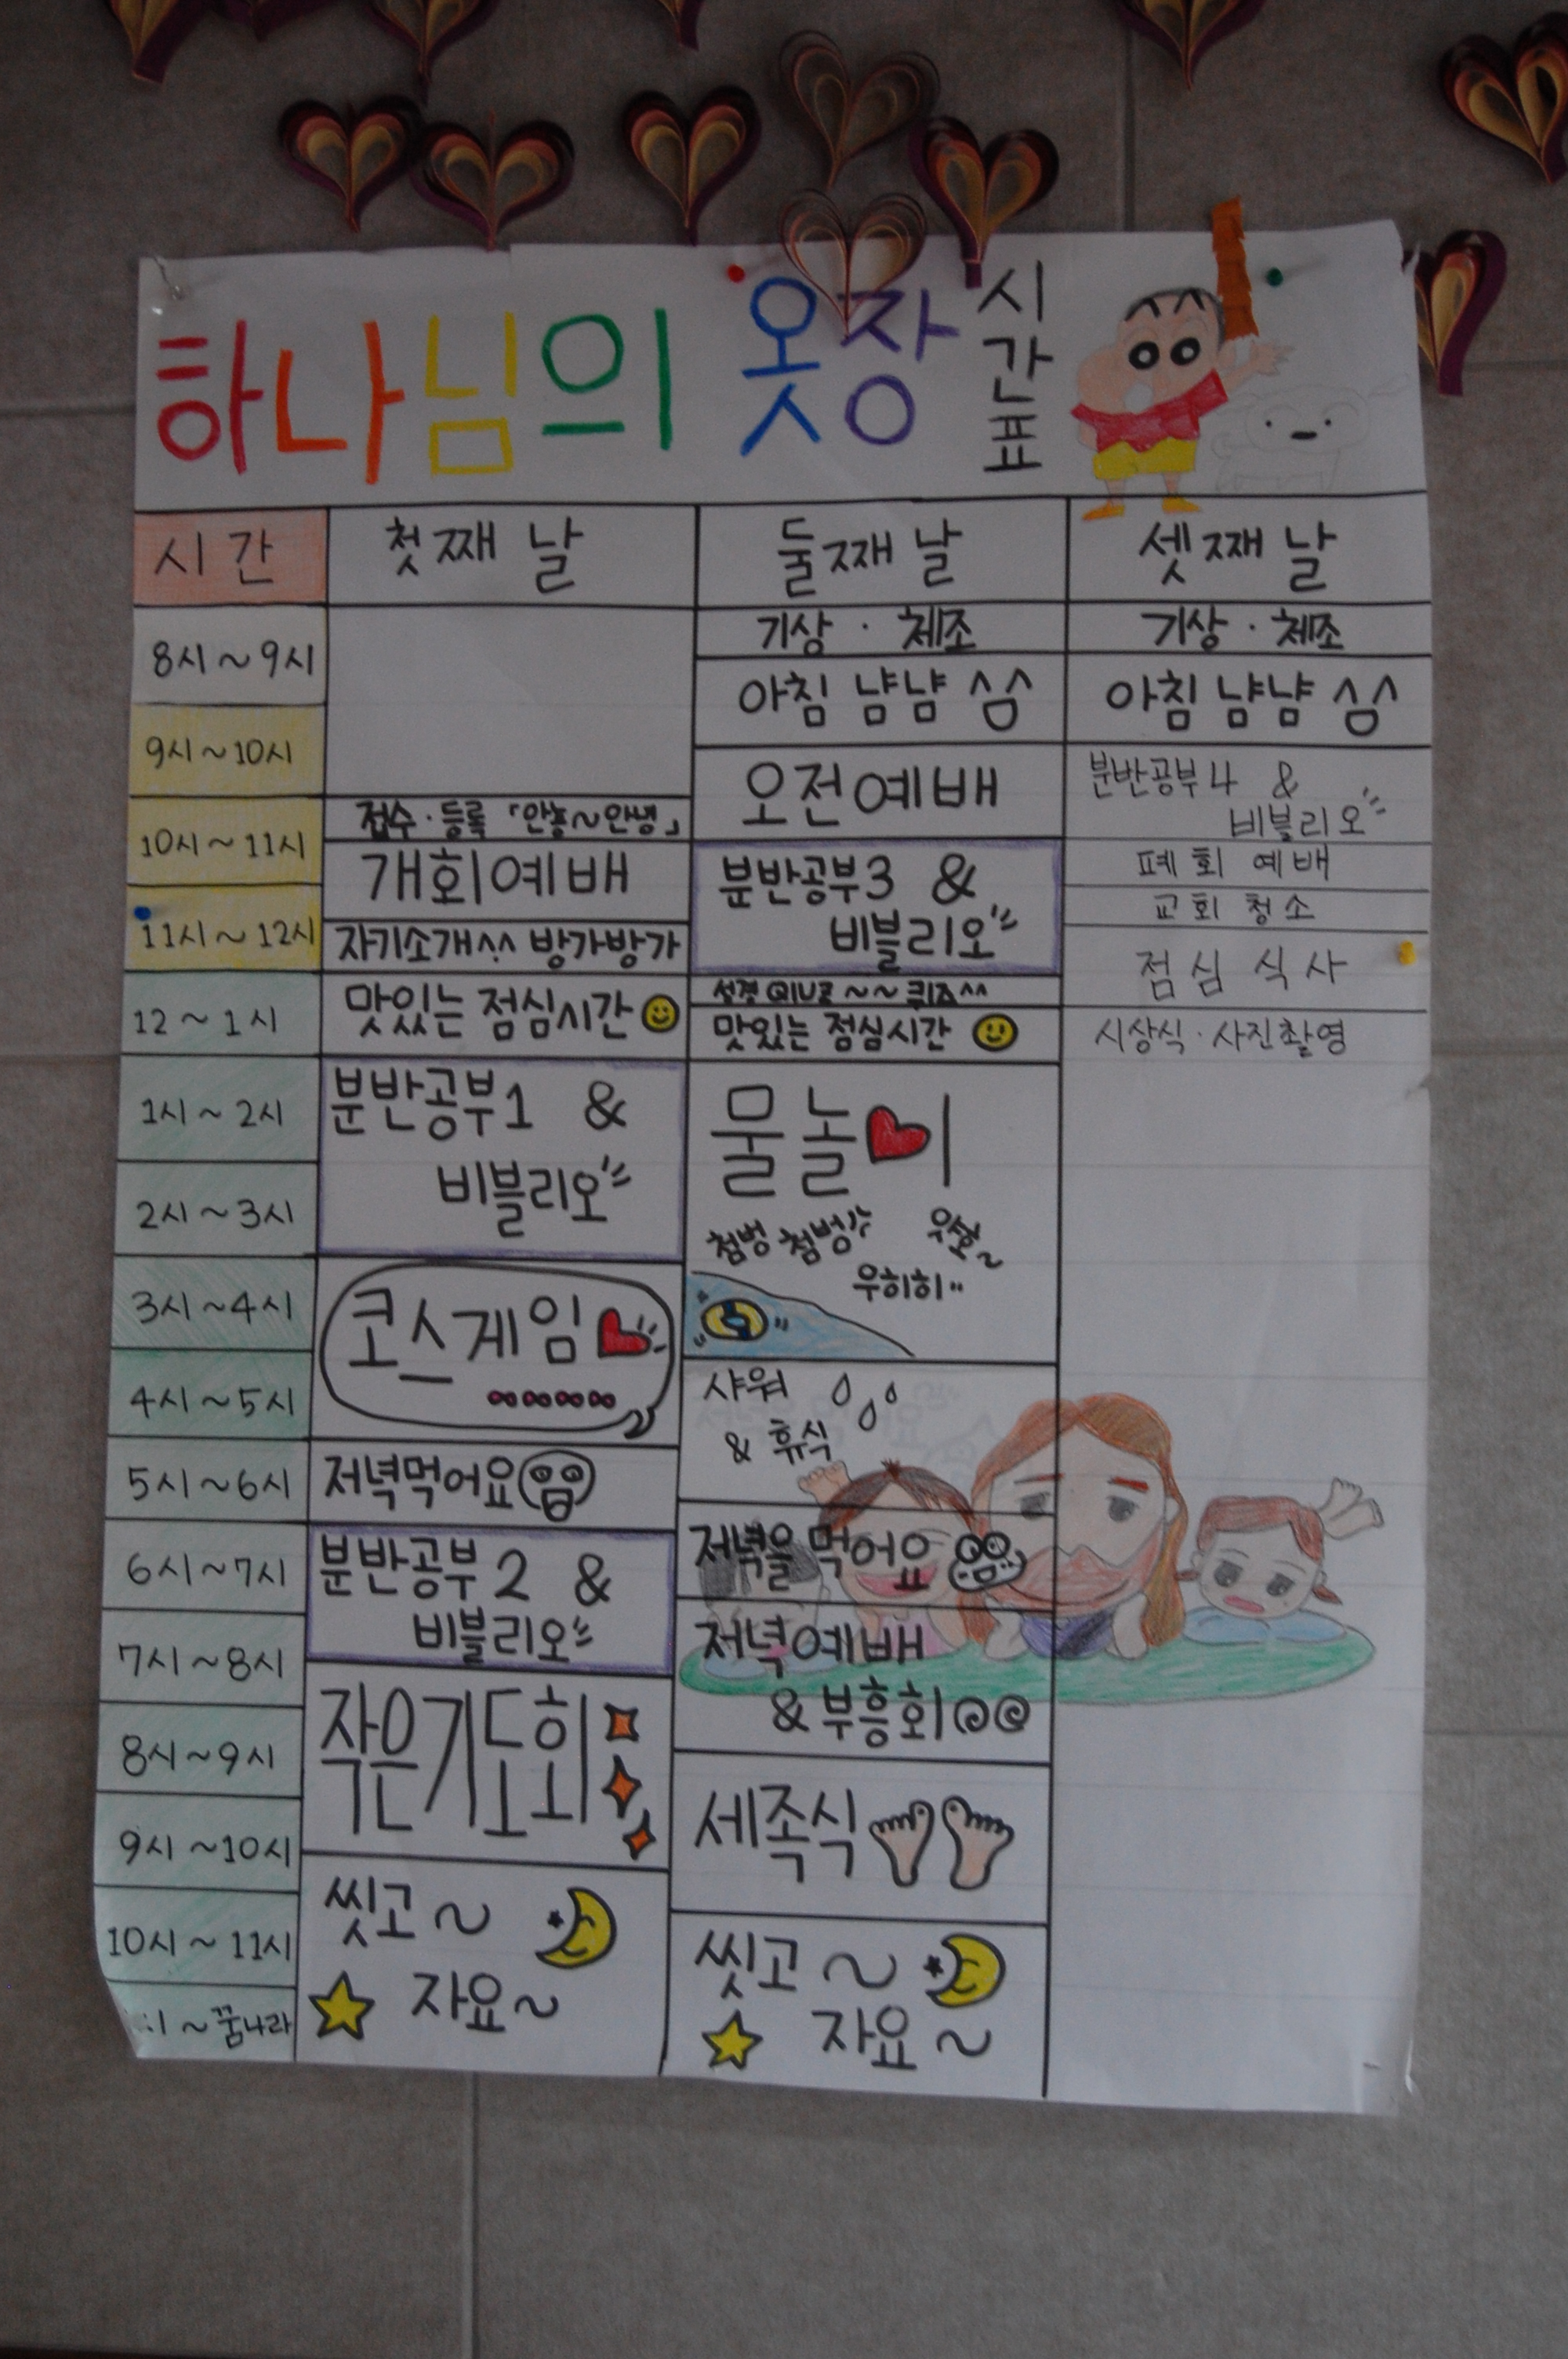 하나님의 옷장 시간표
시간
첫째 날
둘째 날
셋째 날
8시~9시
9시~10시
10시~11시
11시~12시
12~1시
1시~2시
2시~3시
3시~4시
4시~5시
5시~6시
6시~7시
7시~8시
8시~9시
9시~10시
10시~11시
~꿈나라
접수·등록 「안뇽~안녕」
개회예배
자기소개^^ 방가방가
맛있는 점심시간
분반공부1 &
비블리오"
코스게임
저녁먹어요
분반공부2 &
비블리오"
작은기도회
씻고~
자요~
기상·체조
아침 냠냠 ^^
오전예배
분반공부3 &
비블리오"
성경 QIUZ ~~퀴즈^^
맛있는 점심시간
물놀이
첨벙 첨벙
우호~
우히히..
샤워
& 휴식
저녁을 먹어요
저녁예배
& 부흥회
세족식
씻고~
자요~
기상·체조
아침 냠냠 ^^
분반공부4 &
비블리오"
폐회 예배
교회 청소
점심 식사
시상식·사진촬영